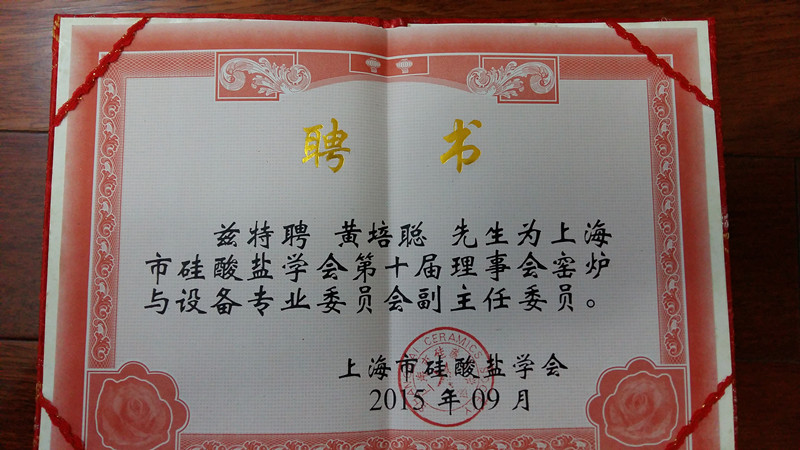 聘 书
兹特聘 黄培聪 先生为上海
市硅酸盐学会第十届理事会窑炉
与设备专业委员会副主任委员。
上海市硅酸盐学会
2015 年 09 月